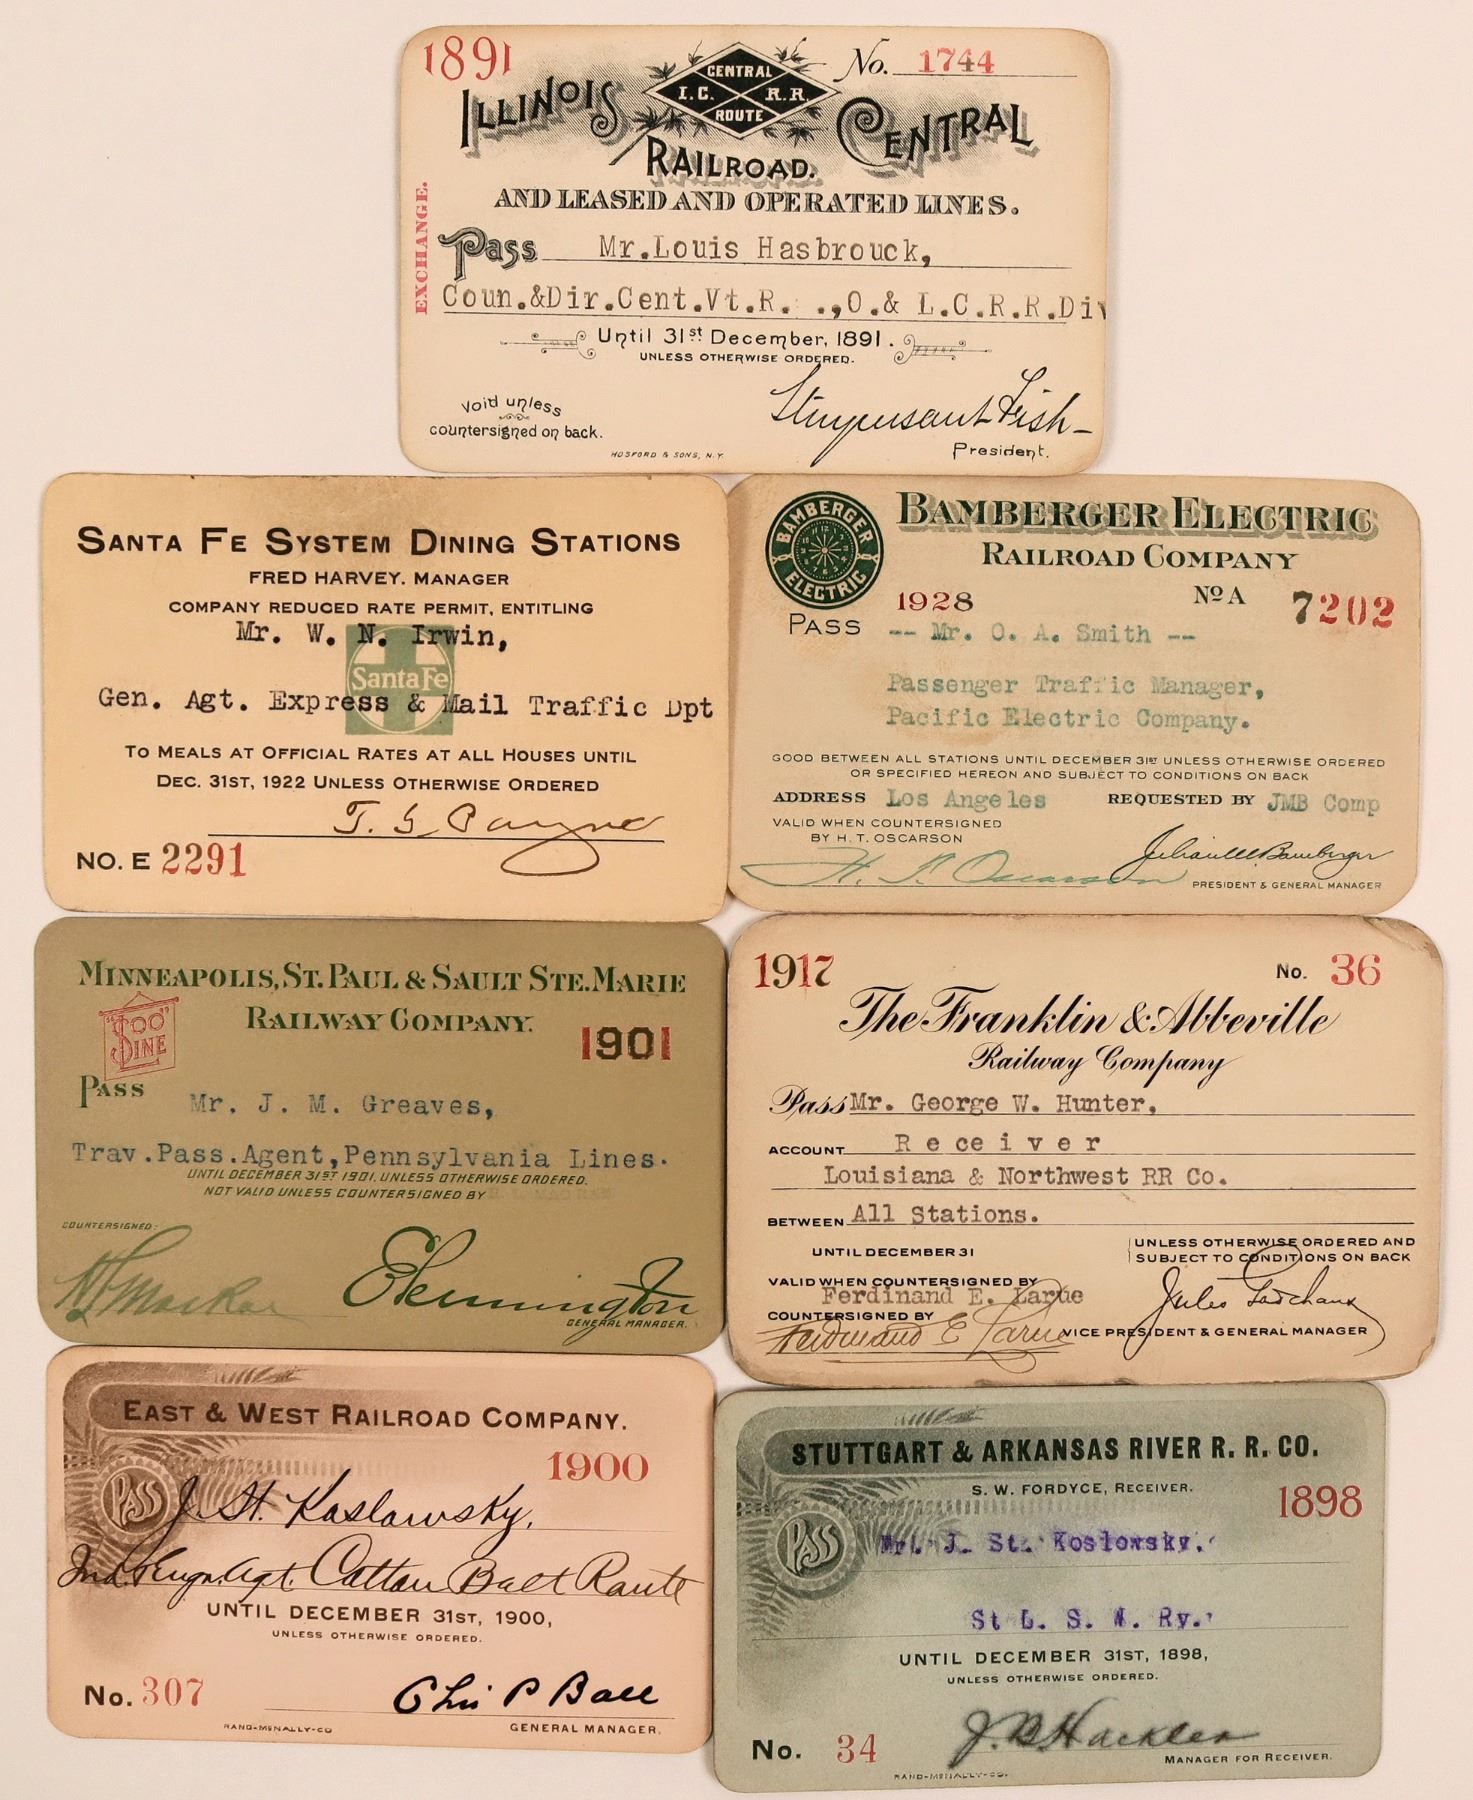 1891
No. 1744
CENTRAL
I.C. R.R.
ROUTE
ILLINOIS CENTRAL
RAILROAD.
AND LEASED AND OPERATED LINES.
EXCHANGE.
Pass Mr.Louis Hasbrouck,
Coun.&Dir.Cent.Vt.R. .,O.& L.C.R.R.Div
Until 31st December, 1891.
UNLESS OTHERWISE ORDERED.
Void unless
countersigned on back.
Stuyvesant Fish
President.
HOSFORD & SONS, N.Y.
SANTA FE SYSTEM DINING STATIONS
FRED HARVEY. MANAGER
COMPANY REDUCED RATE PERMIT, ENTITLING
Mr. W. N. Irwin,
Santa Fe
Gen. Agt. Express & Mail Traffic Dpt
TO MEALS AT OFFICIAL RATES AT ALL HOUSES UNTIL
DEC. 31ST, 1922 UNLESS OTHERWISE ORDERED
NO. E 2291
BAMBERGER ELECTRIC
BAMBERGER ELECTRIC
RAILROAD COMPANY
1928
No A 7202
PASS -- Mr. O. A. Smith --
Passenger Traffic Manager,
Pacific Electric Company.
GOOD BETWEEN ALL STATIONS UNTIL DECEMBER 31ST UNLESS OTHERWISE ORDERED
OR SPECIFIED HEREON AND SUBJECT TO CONDITIONS ON BACK
ADDRESS Los Angeles REQUESTED BY JMB Comp
VALID WHEN COUNTERSIGNED
BY H. T. OSCARSON
H. T. Oscarson
Julian M. Bamberger
PRESIDENT & GENERAL MANAGER
MINNEAPOLIS, ST. PAUL & SAULT STE. MARIE
RAILWAY COMPANY.
"SOO"
LINE
1901
PASS Mr. J. M. Greaves,
Trav.Pass.Agent,Pennsylvania Lines.
UNTIL DECEMBER 31ST 1901. UNLESS OTHERWISE ORDERED.
NOT VALID UNLESS COUNTERSIGNED BY
COUNTERSIGNED:
E Pennington
GENERAL MANAGER.
1917
No. 36
The Franklin & Abbeville
Railway Company
Pass Mr. George W. Hunter,
ACCOUNT Receiver
Louisiana & Northwest RR Co.
BETWEEN All Stations.
UNTIL DECEMBER 31
UNLESS OTHERWISE ORDERED AND
SUBJECT TO CONDITIONS ON BACK
VALID WHEN COUNTERSIGNED BY
Ferdinand E. Larue
COUNTERSIGNED BY
Ferdinand E Larue
VICE PRESIDENT & GENERAL MANAGER
EAST & WEST RAILROAD COMPANY.
1900
PASS
J. St. Koslowsky,
Ind. & Emgn. Agt. Cotton Belt Route
UNTIL DECEMBER 31ST, 1900,
UNLESS OTHERWISE ORDERED.
No. 307
Chas P Ball
GENERAL MANAGER.
RAND-McNALLY-CO
STUTTGART & ARKANSAS RIVER R. R. CO.
S. W. FORDYCE, RECEIVER.
1898
PASS
Mr. J. St. Koslowsky,
St L. S. W. Ry.
UNTIL DECEMBER 31ST, 1898,
UNLESS OTHERWISE ORDERED.
No. 34
J. B. Hackler
MANAGER FOR RECEIVER.
RAND-McNALLY-CO.